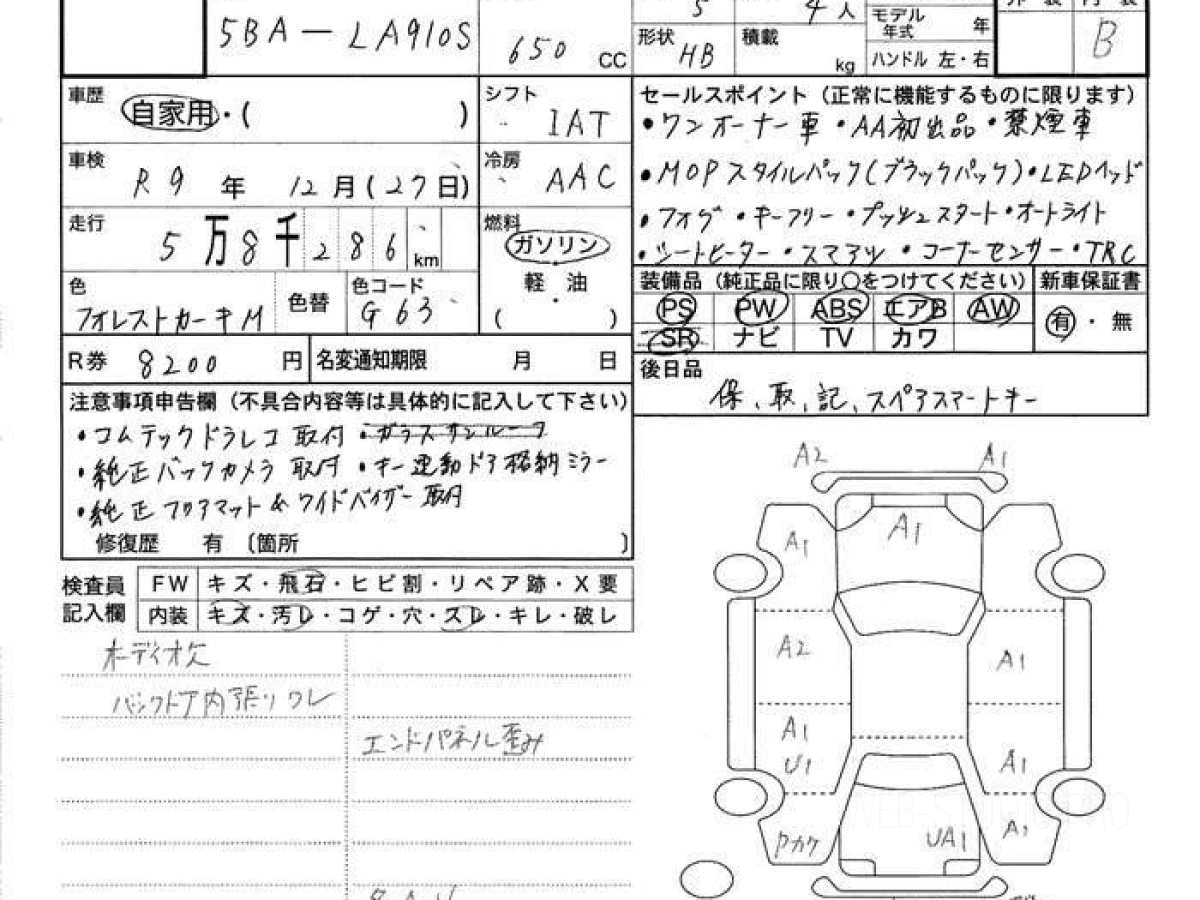 5BA-LA910S
650 CC
5
4 人
形状 HB
積載 kg
モデル年式 年
ハンドル 左・右
B
車歴 自家用・( )
シフト IAT
車検 R9年 12月(27日)
冷房 AAC
走行 5万8千286km
燃料 ガソリン
軽・油
( )
色 フォレストカーキM
色替
色コード G63
R券 8200 円
名変通知期限 月 日
セールスポイント(正常に機能するものに限ります)
・ワンオーナー車 ・AA初出品 ・禁煙車
・MOPスタイルパック(ブラックパック)・LEDヘッド
・フォグ ・キーフリー ・プッシュスタート ・オートライト
・シートヒーター ・スマアシ ・コーナーセンサー ・TRC
装備品(純正品に限り○をつけてください)
新車保証書
PS PW ABS エアB AW
有・無
SR ナビ TV カワ
後日品
保、取、記、スペアスマートキー
注意事項申告欄(不具合内容等は具体的に記入して下さい)
・コムテックドラレコ取付 ・ガラスサンルーフ
・純正バックカメラ取付 ・キー連動ドア格納ミラー
・純正フロアマット&ワイドバイザー取付
修復歴 有 〔箇所 〕
検査員記入欄
FW キズ・飛石・ヒビ割・リペア跡・X要
内装 キズ・汚レ・コゲ・穴・スレ・キレ・破レ
オーディオ欠
バックドア内張りワレ
エンドパネル歪み
A2 A1
A1 A1
A2 A1
A1 U1 A1
Pカケ UA1 A1
WEB-S